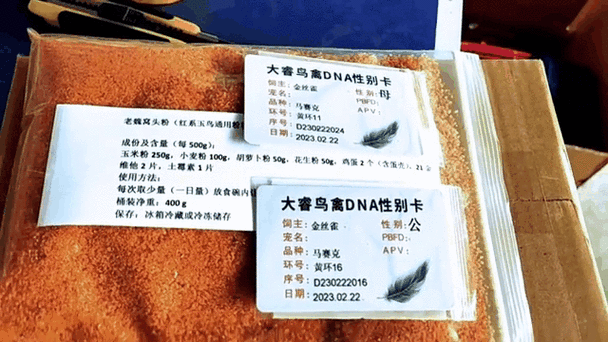 大睿鸟禽DNA性别卡
饲主：金丝雀 性别：母
宠名： PBFD：
品种：马赛克 APV：
环号：黄环11
序号：D230222024
日期：2023.02.22
老魏窝头粉（红系玉鸟通用粉
成份及含量（每 500g）：
玉米粉 250g，小麦粉 100g，胡萝卜粉 50g，花生粉 50g，鸡蛋 2 个（含蛋壳），21 金
维他 2 片，土霉素 1 片
使用方法：
每次取少量（一日量）放食碗内
桶装净重：400 g
保存：冰箱冷藏或冷冻储存
大睿鸟禽DNA性别卡
饲主：金丝雀 性别：公
宠名： PBFD：
品种：马赛克 APV：
环号：黄环16
序号：D230222016
日期：2023.02.22